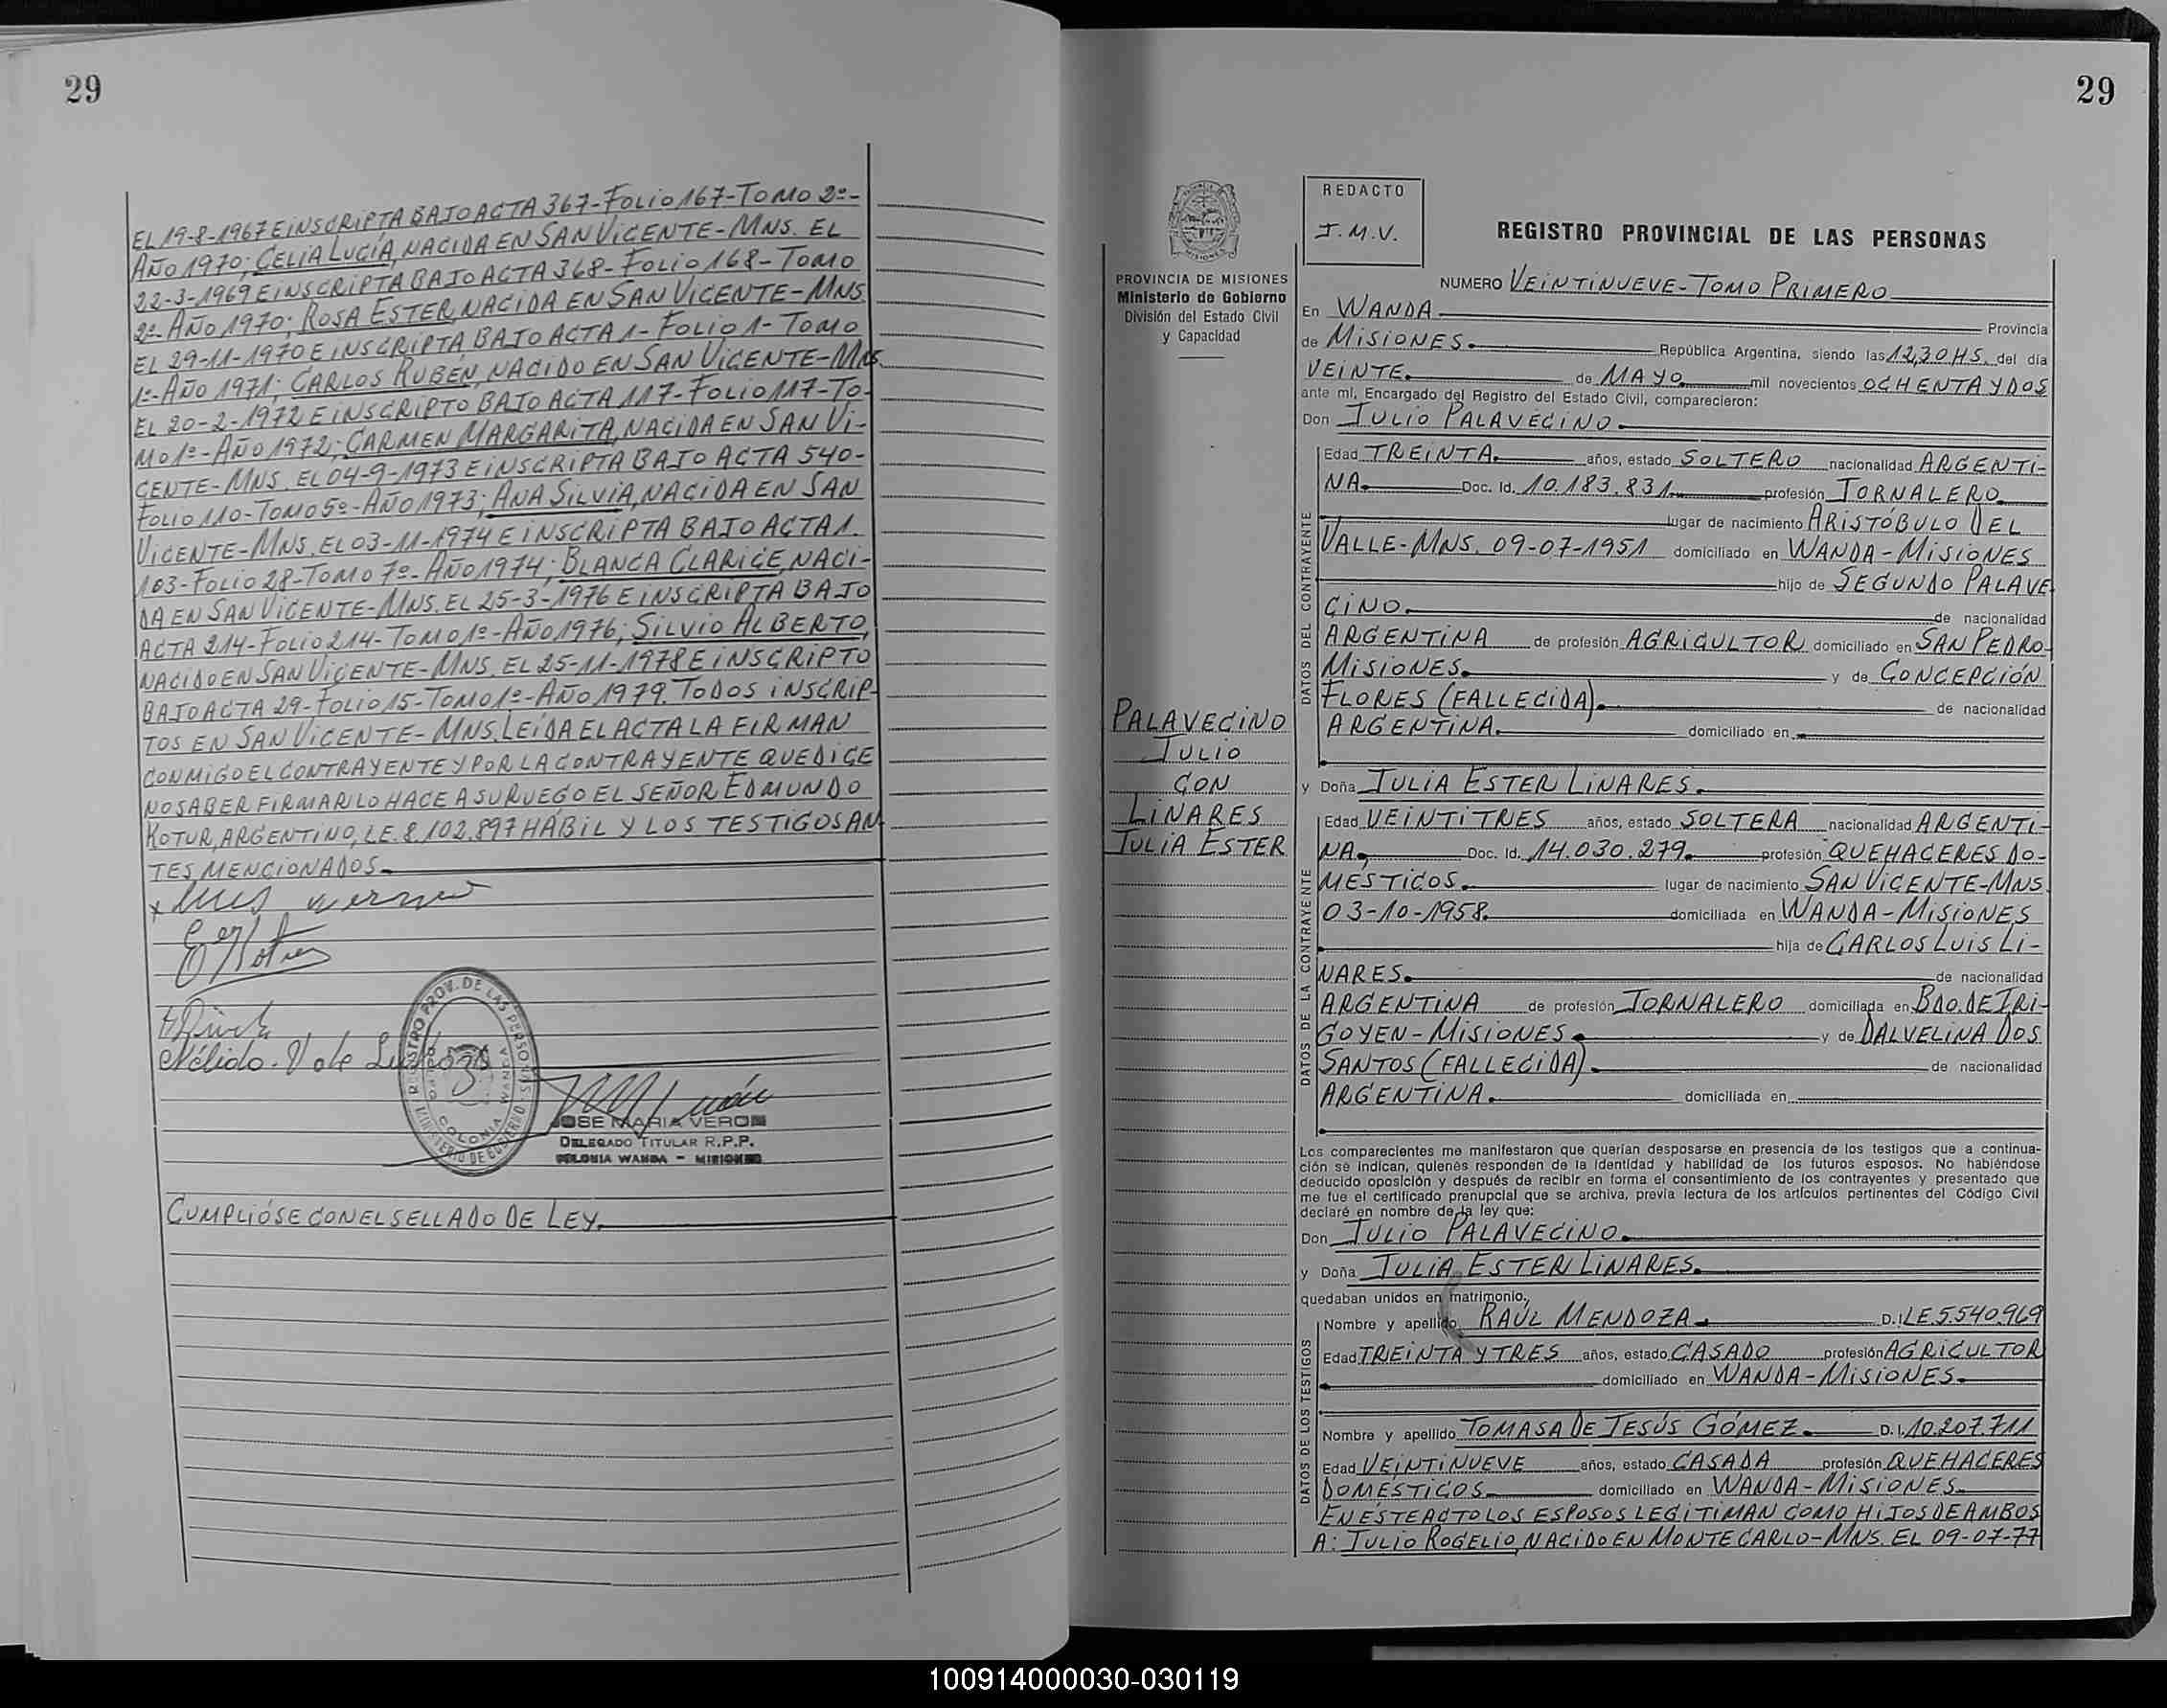 29
EL 19-8-1967 E iNSCRiPTA BAJO ACTA 367-FOLiO 167-TOMO 2º-
AÑO 1970; CELiA LUCÍA, NACiDA EN SAN ViCENTE-MNS. EL
22-3-1969 E iNSCRiPTA BAJO ACTA 368-FOLiO 168-TOMO
2º-AÑO 1970; ROSA ESTER, NACiDA EN SAN ViCENTE-MNS
EL 29-11-1970 E iNSCRiPTA BAJO ACTA 1-FOLiO 1-TOMO
1º-AÑO 1971; CARLOS RUBÉN, NACiDO EN SAN ViCENTE-MNS.
EL 20-2-1972 E iNSCRiPTO BAJO ACTA 117-FOLiO 117-TO-
MO 1º-AÑO 1972; CARMEN MARGARiTA, NACiDA EN SAN Vi-
CENTE-MNS. EL 04-9-1973 E iNSCRiPTA BAJO ACTA 540-
FOLiO 110-TOMO 5º-AÑO 1973; ANA SiLViA, NACiDA EN SAN
ViCENTE-MNS. EL 03-11-1974 E iNSCRiPTA BAJO ACTA 1.
103-FOLiO 28-TOMO 7º-AÑO 1974; BLANCA CLARiCE, NACi-
DA EN SAN ViCENTE-MNS. EL 25-3-1976 E iNSCRiPTA BAJO
ACTA 214-FOLiO 214-TOMO 1º-AÑO 1976; SiLViO ALBERTO,
NACiDO EN SAN ViCENTE-MNS. EL 25-11-1978 E iNSCRiPTO
BAJO ACTA 29-FOLiO 15-TOMO 1º-AÑO 1979. TODOS iNSCRiP-
TOS EN SAN ViCENTE-MNS. LEÍDA EL ACTA LA FiRMAN
CONMiGO EL CONTRAYENTE Y POR LA CONTRAYENTE QUE DiCE
NO SABER FiRMAR LO HACE A SU RUEGO EL SEÑOR EDMUNDO
KOTUR, ARGENTiNO, LE. 8.102.897 HÁBiL Y LOS TESTiGOS AN
TES MENCiONADOS.
REGISTRO PROV. DE LAS PERSONAS
MINISTERIO DE GOBIERNO
COLONIA WANDA
JOSE MARIA VERON
DELEGADO TITULAR R.P.P.
COLONIA WANDA - MISIONES
CUMPLiÓSE CON EL SELLADO DE LEY.
29
PROVINCIA DE MISIONES
Ministerio de Gobierno
División del Estado Civil
y Capacidad
PALAVECiNO
JULiO
CON
LiNARES
JULiA ESTER
REDACTO
J.M.V.
REGISTRO PROVINCIAL DE LAS PERSONAS
NUMERO VEiNTiNUEVE-TOMO PRiMERO
En WANDA Provincia
de MiSiONES. República Argentina, siendo las 12,30 HS. del día
VEiNTE. de MAYO mil novecientos OCHENTA Y DOS
ante mí, Encargado del Registro del Estado Civil, comparecieron:
Don JULiO PALAVECiNO.
DATOS DEL CONTRAYENTE
Edad TREiNTA. años, estado SOLTERO nacionalidad ARGENTi-
NA. Doc. Id. 10.183.831. profesión JORNALERO.
lugar de nacimiento ARiSTÓBULO DEL
VALLE-MNS. 09-07-1951 domiciliado en WANDA-MiSiONES
hijo de SEGUNDO PALAVE-
CiNO. de nacionalidad
ARGENTiNA de profesión AGRiCULTOR domiciliado en SAN PEDRO-
MiSiONES. y de CONCEPCiÓN
FLORES (FALLECiDA). de nacionalidad
ARGENTiNA. domiciliado en
y Doña JULiA ESTER LiNARES.
DATOS DE LA CONTRAYENTE
Edad VEiNTiTRES años, estado SOLTERA nacionalidad ARGENTi-
NA, Doc. Id. 14.030.279. profesión QUEHACERES DO-
MÉSTiCOS. lugar de nacimiento SAN ViCENTE-MNS.
03-10-1958. domiciliada en WANDA-MiSiONES
hija de CARLOS LUiS Li-
NARES. de nacionalidad
ARGENTiNA de profesión JORNALERO domiciliada en BDO. DE IRi-
GOYEN-MiSiONES. y de DALVELiNA DOS
SANTOS (FALLECiDA). de nacionalidad
ARGENTiNA. domiciliada en
Los comparecientes me manifestaron que querían desposarse en presencia de los testigos que a continua-
ción se indican, quienes responden de la identidad y habilidad de los futuros esposos. No habiéndose
deducido oposición y después de recibir en forma el consentimiento de los contrayentes y presentado que
me fue el certificado prenupcial que se archiva, previa lectura de los artículos pertinentes del Código Civil
declaré en nombre de la ley que:
Don JULiO PALAVECiNO.
y Doña JULiA ESTER LiNARES.
quedaban unidos en matrimonio.
DATOS DE LOS TESTIGOS
Nombre y apellido RAÚL MENDOZA. D.I. LE 5.540.969
Edad TREiNTA Y TRES años, estado CASADO profesión AGRiCULTOR
domiciliado en WANDA-MiSiONES.
Nombre y apellido TOMASA DE JESÚS GÓMEZ. D.I. 10.207.711
Edad VEiNTiNUEVE años, estado CASADA profesión QUEHACERES
DOMÉSTiCOS. domiciliado en WANDA-MiSiONES.
EN ÉSTE ACTO LOS ESPOSOS LEGiTiMAN COMO HiJOS DE AMBOS
A: JULiO ROGELiO, NACiDO EN MONTECARLO-MNS. EL 09-07-77
100914000030-030119